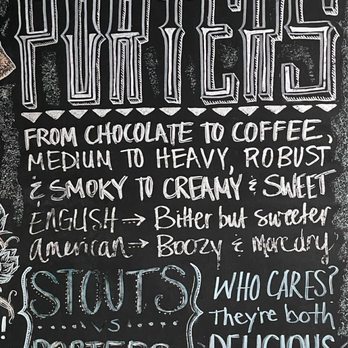 PORTERS
FROM CHOCOLATE TO COFFEE,
MEDIUM TO HEAVY, ROBUST
& SMOKY TO CREAMY & SWEET
ENGLISH → Bitter but sweeter
American → Boozy & more dry
{STOUTS}
vs
PORTERS
WHO CARES?
They're both
DELICIOUS